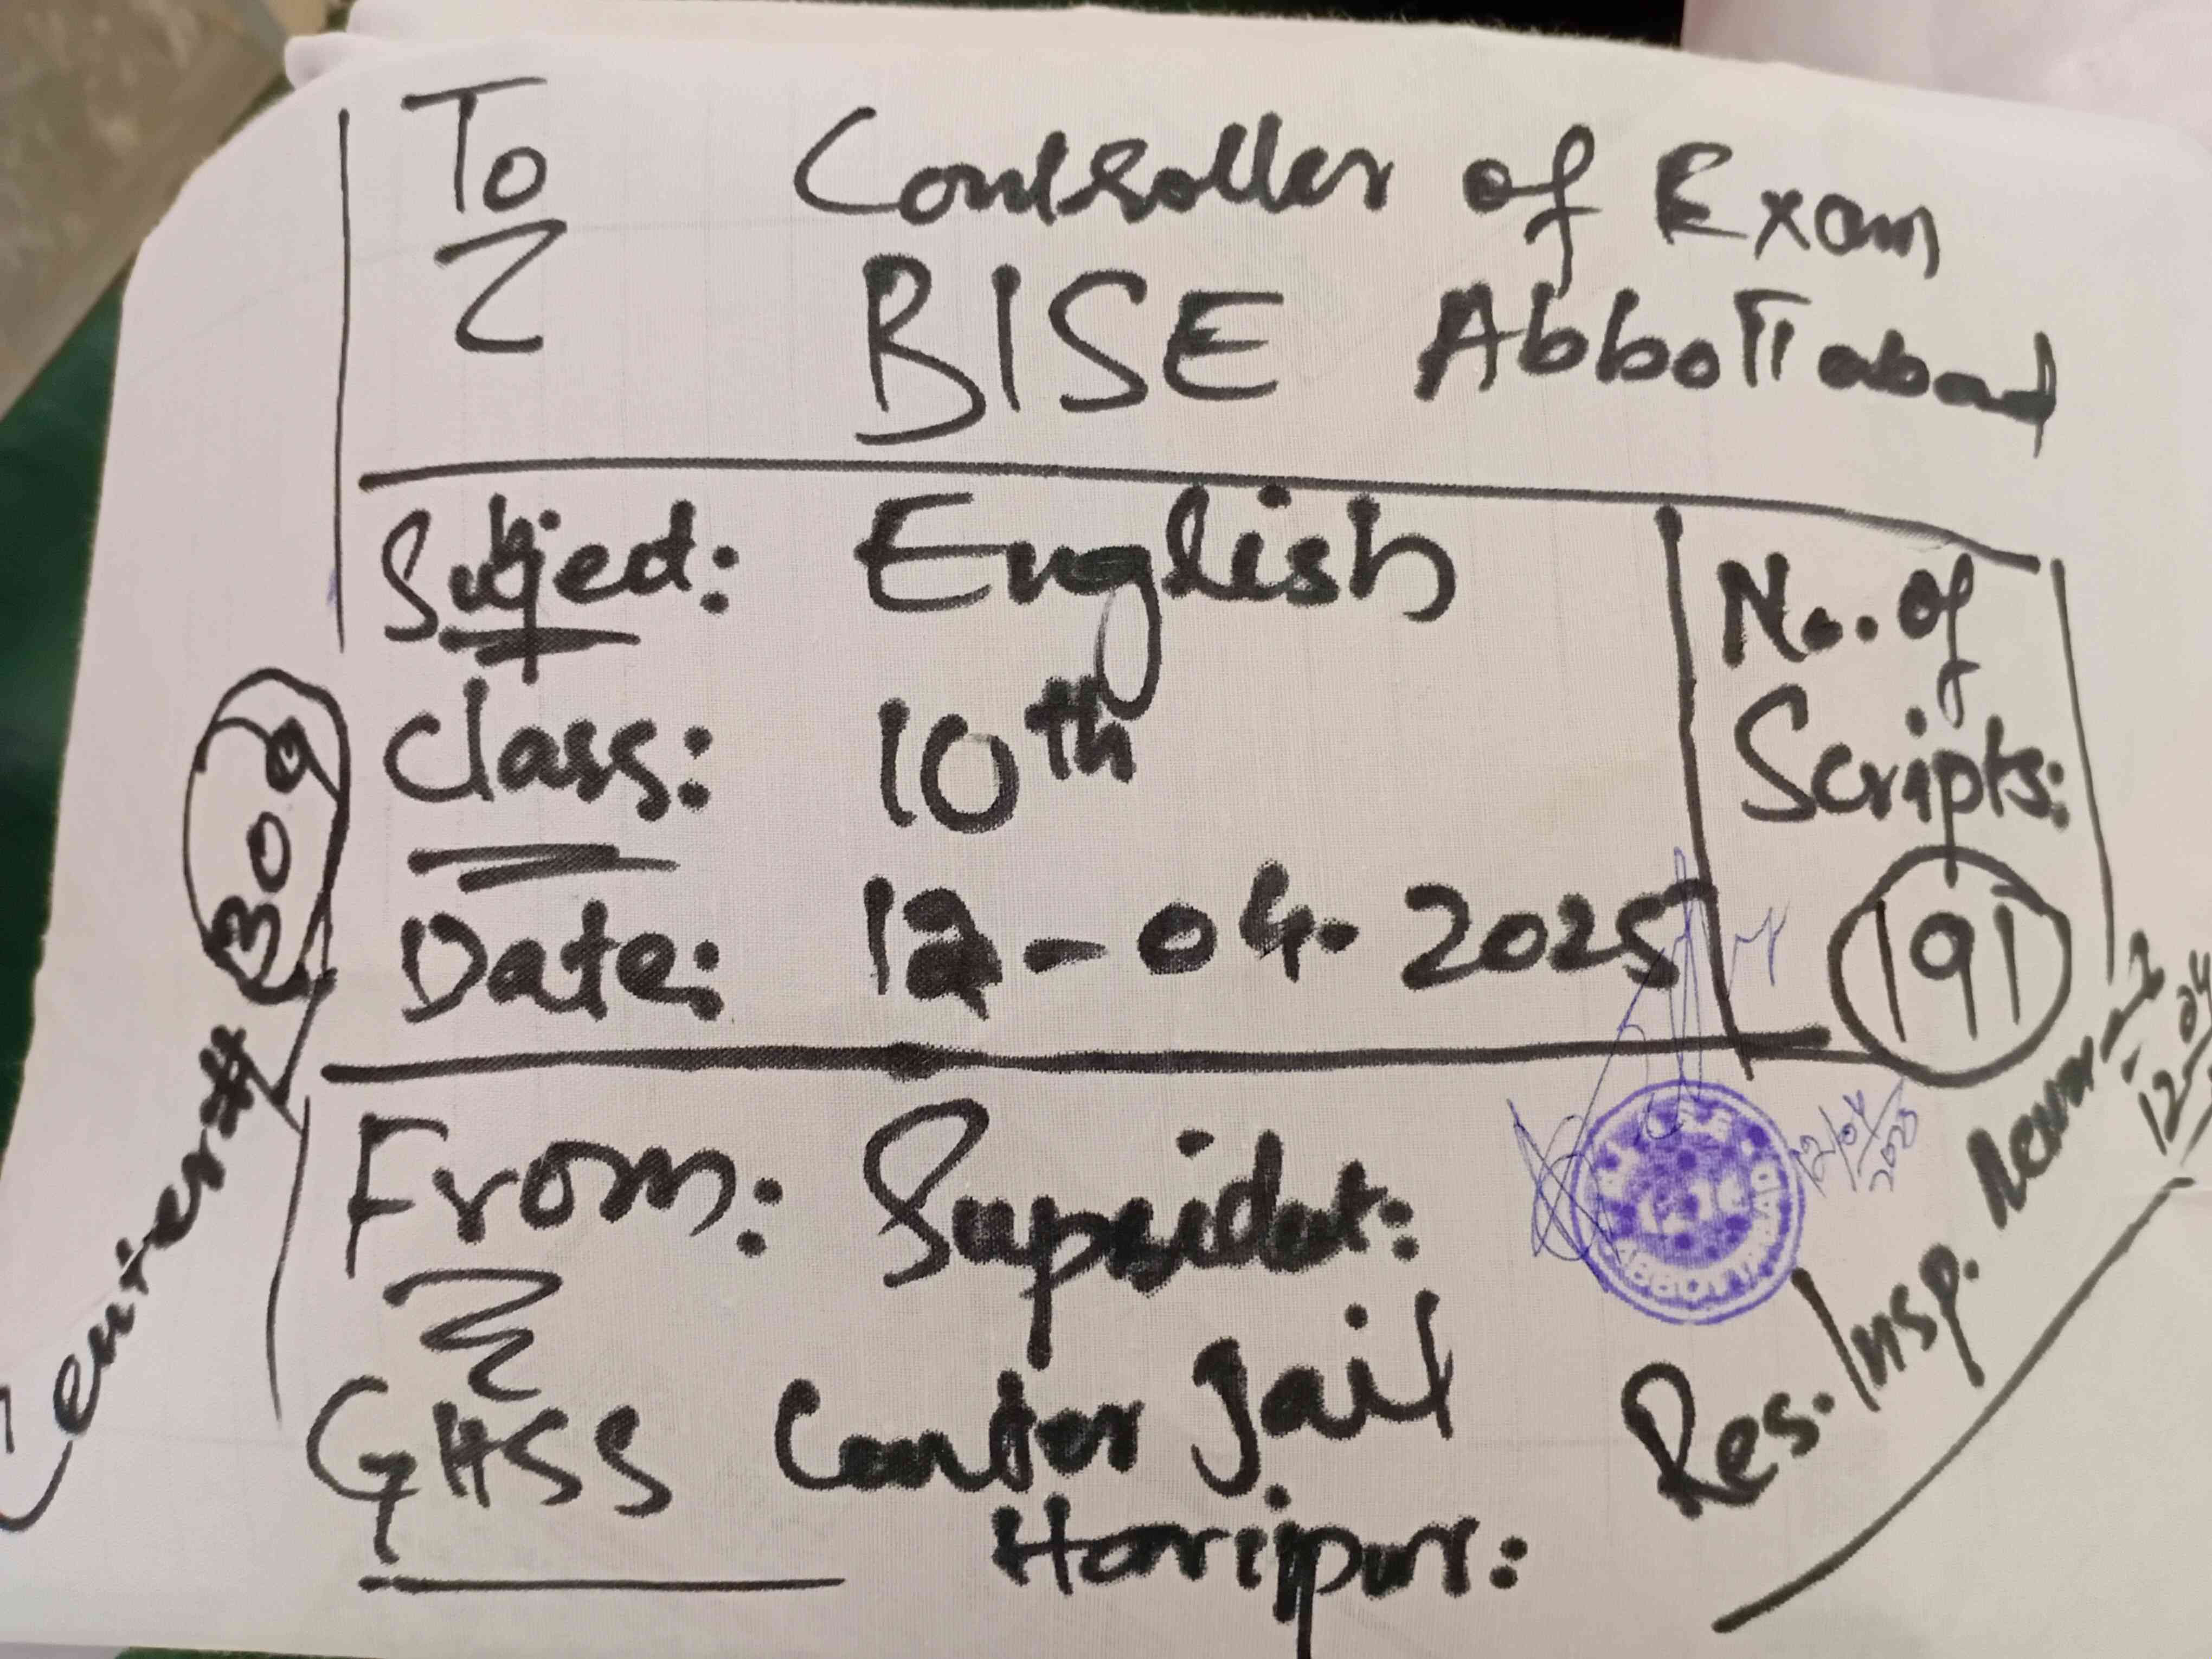 To
Controller of Exam
BISE Abbottabad
Subject: English
Class: 10th
Date: 12-04-2025
No. of
Scripts:
191
Center# 309
From: Supsidet:
GHSS Center Jail
Haripur:
Res. Insp.
12-04
12/04/2025
ABBOTTABAD